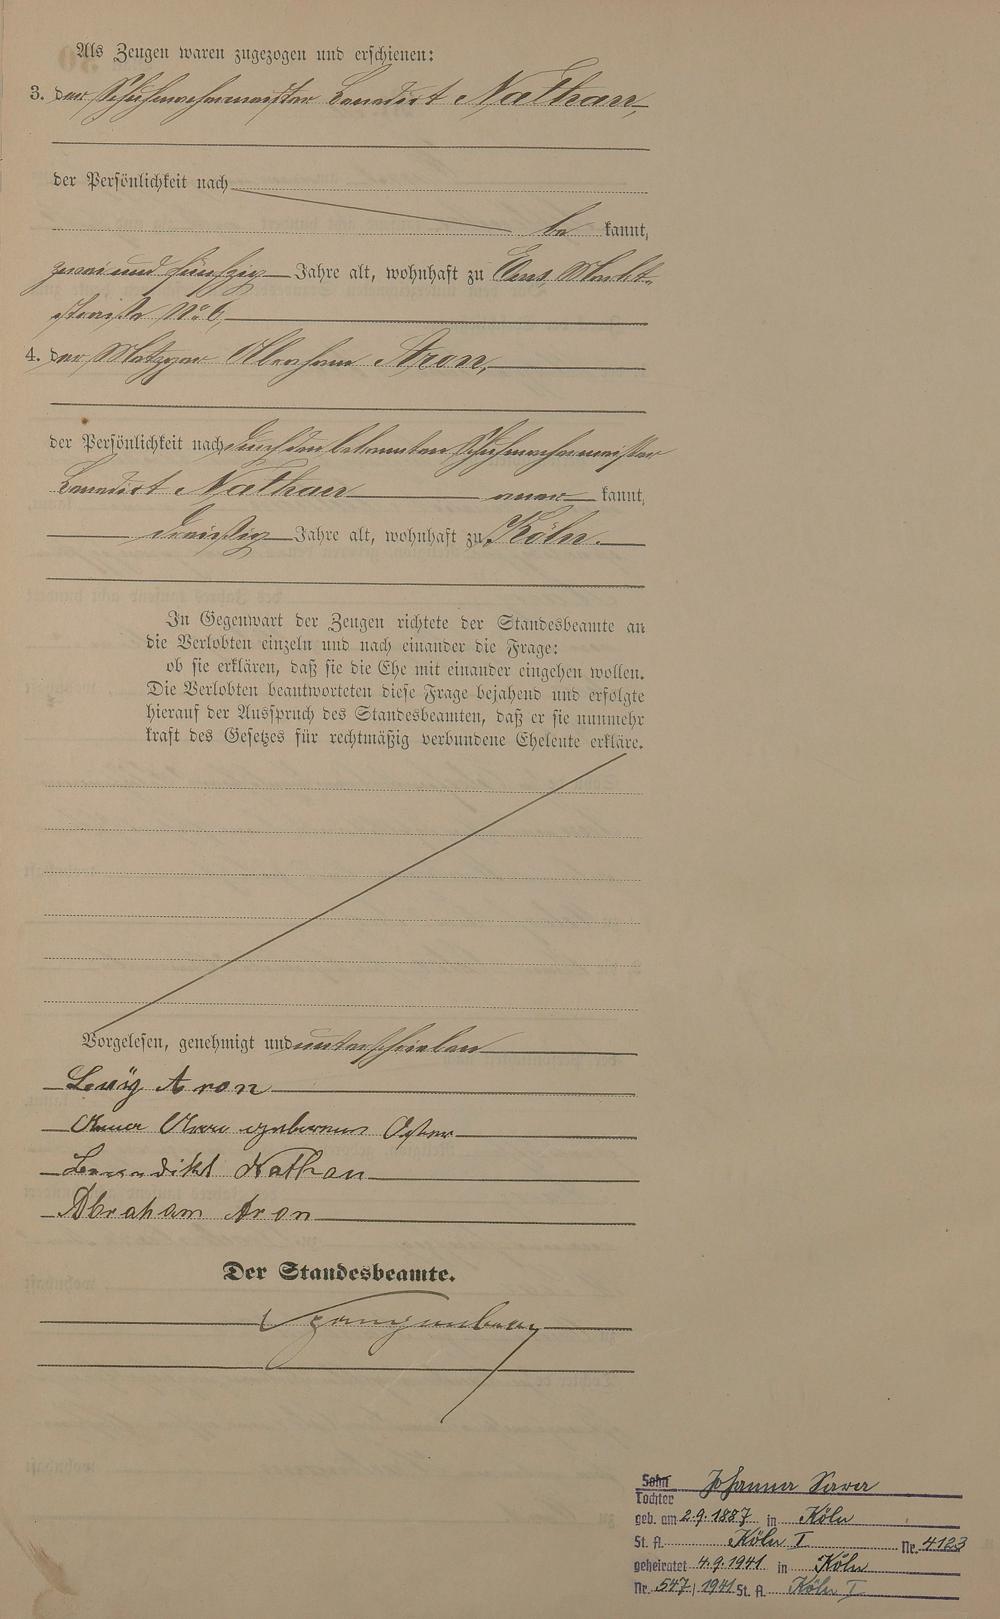 Als Zeugen waren zugezogen und erschienen:
3. der Schuhmachermeister Benedict Nathan,
der Persönlichkeit nach
be kannt,
zwei und fünfzig Jahre alt, wohnhaft zu Ems, Markt-
straße No 6,
4. der Metzger Abraham Aron,
der Persönlichkeit nach durch den bekannten Schuhmachermeister
Benedict Nathan aner kannt,
dreißig Jahre alt, wohnhaft zu Köln.
In Gegenwart der Zeugen richtete der Standesbeamte an
die Verlobten einzeln und nach einander die Frage:
ob sie erklären, daß sie die Ehe mit einander eingehen wollen.
Die Verlobten beantworteten diese Frage bejahend und erfolgte
hierauf der Ausspruch des Standesbeamten, daß er sie nunmehr
kraft des Gesetzes für rechtmäßig verbundene Eheleute erkläre.
Vorgelesen, genehmigt und unterschrieben
Levÿ Aron
geborene Oster
Benedikt Nathan
Abraham Aron
Der Standesbeamte.
Sohn
Tochter Johanna Sara
geb. am 2.9.1887 in Köln
St. A. Köln I Nr. 4123
geheiratet 4.9.1941 in Köln
Nr. 547/1941 St. A. Köln I